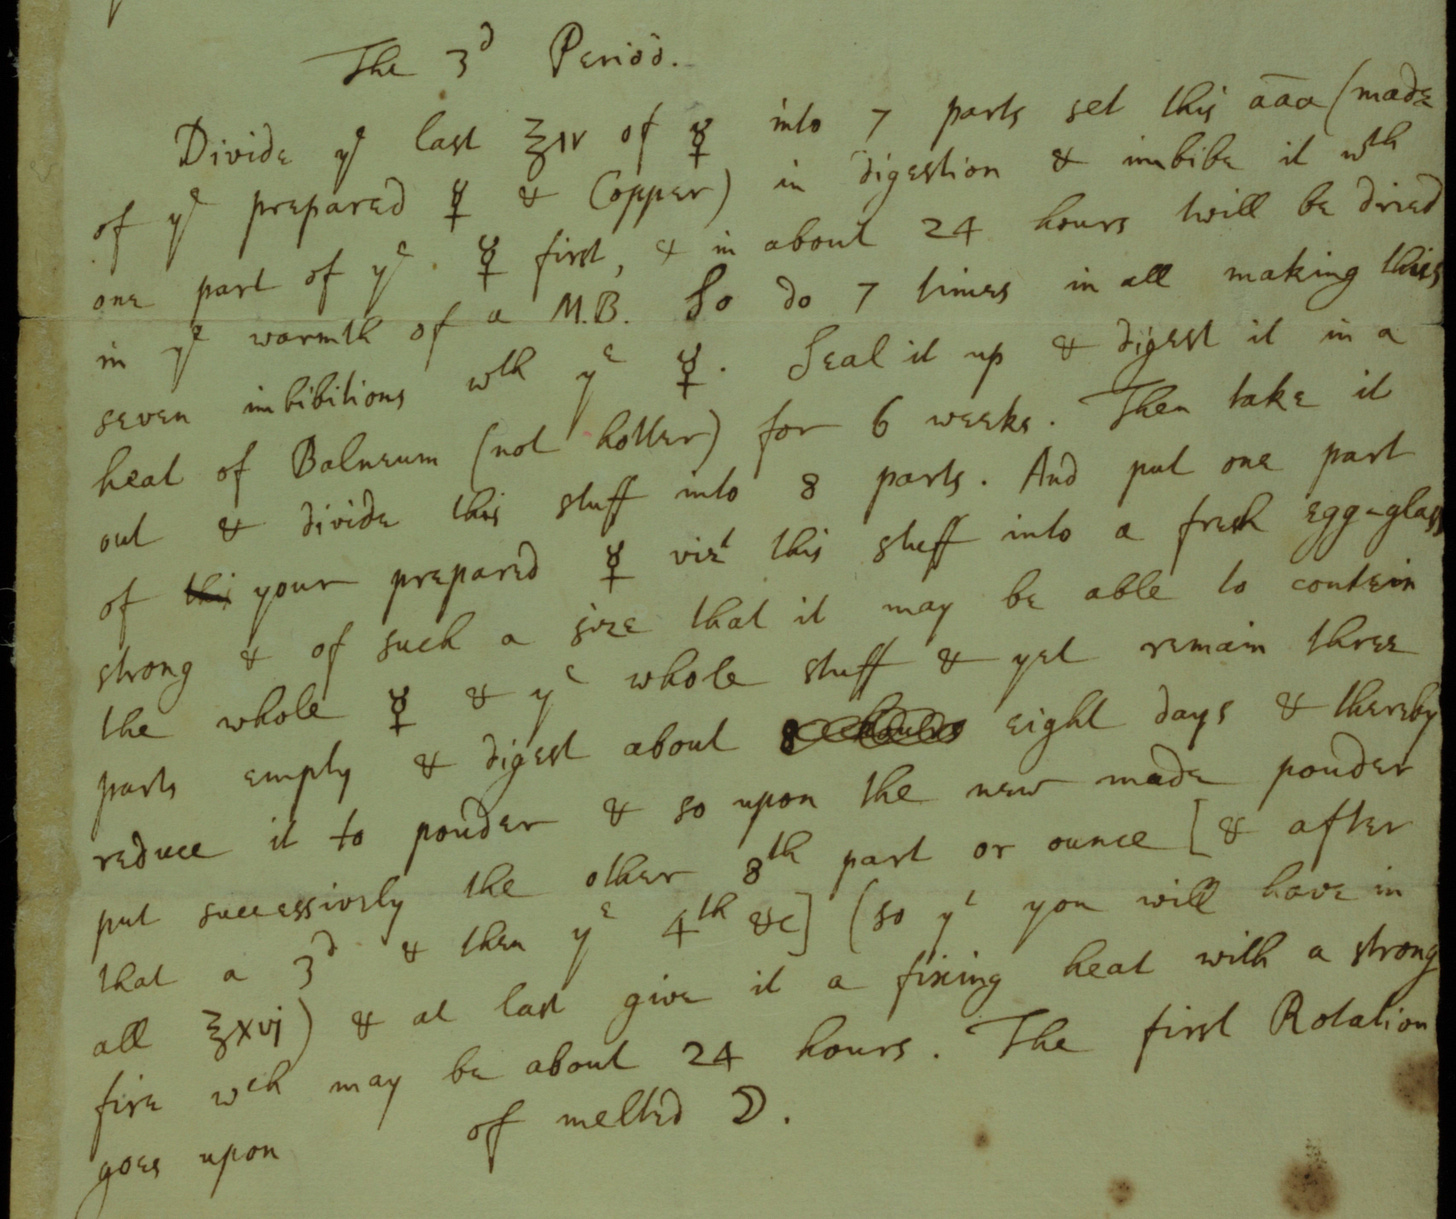 The 3d Period.
Divide ye last ℥iv of ☿ into 7 parts set this āāa (made
of ye prepared ☿ & Copper) in digestion & imbibe it wth
one part of ye ☿ first, & in about 24 hours twill be dried
in ye warmth of a M.B. So do 7 times in all making this
seven imbibitions wth ye ☿. Seal it up & digest it in a
heat of Balneum (not hotter) for 6 weeks. Then take it
out & divide this stuff into 8 parts. And put one part
of thi your prepared ☿ vizt this stuff into a fresh egg-glass
strong & of such a size that it may be able to contein
the whole ☿ & ye whole stuff & yet remain three
parts empty & digest about 8 eight days & thereby
reduce it to pouder & so upon the new made pouder
put successively the other 8th part or ounce [& after
that a 3d & then ye 4th &c] (so yt you will have in
all ℥xvj) & at last give it a fixing heat with a strong
fire wch may be about 24 hours. The first Rotation
goes upon of melted ☽.